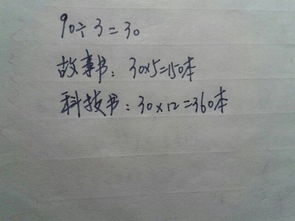 90÷3=30
故事书：30×5=150本
科技书：30×12=360本